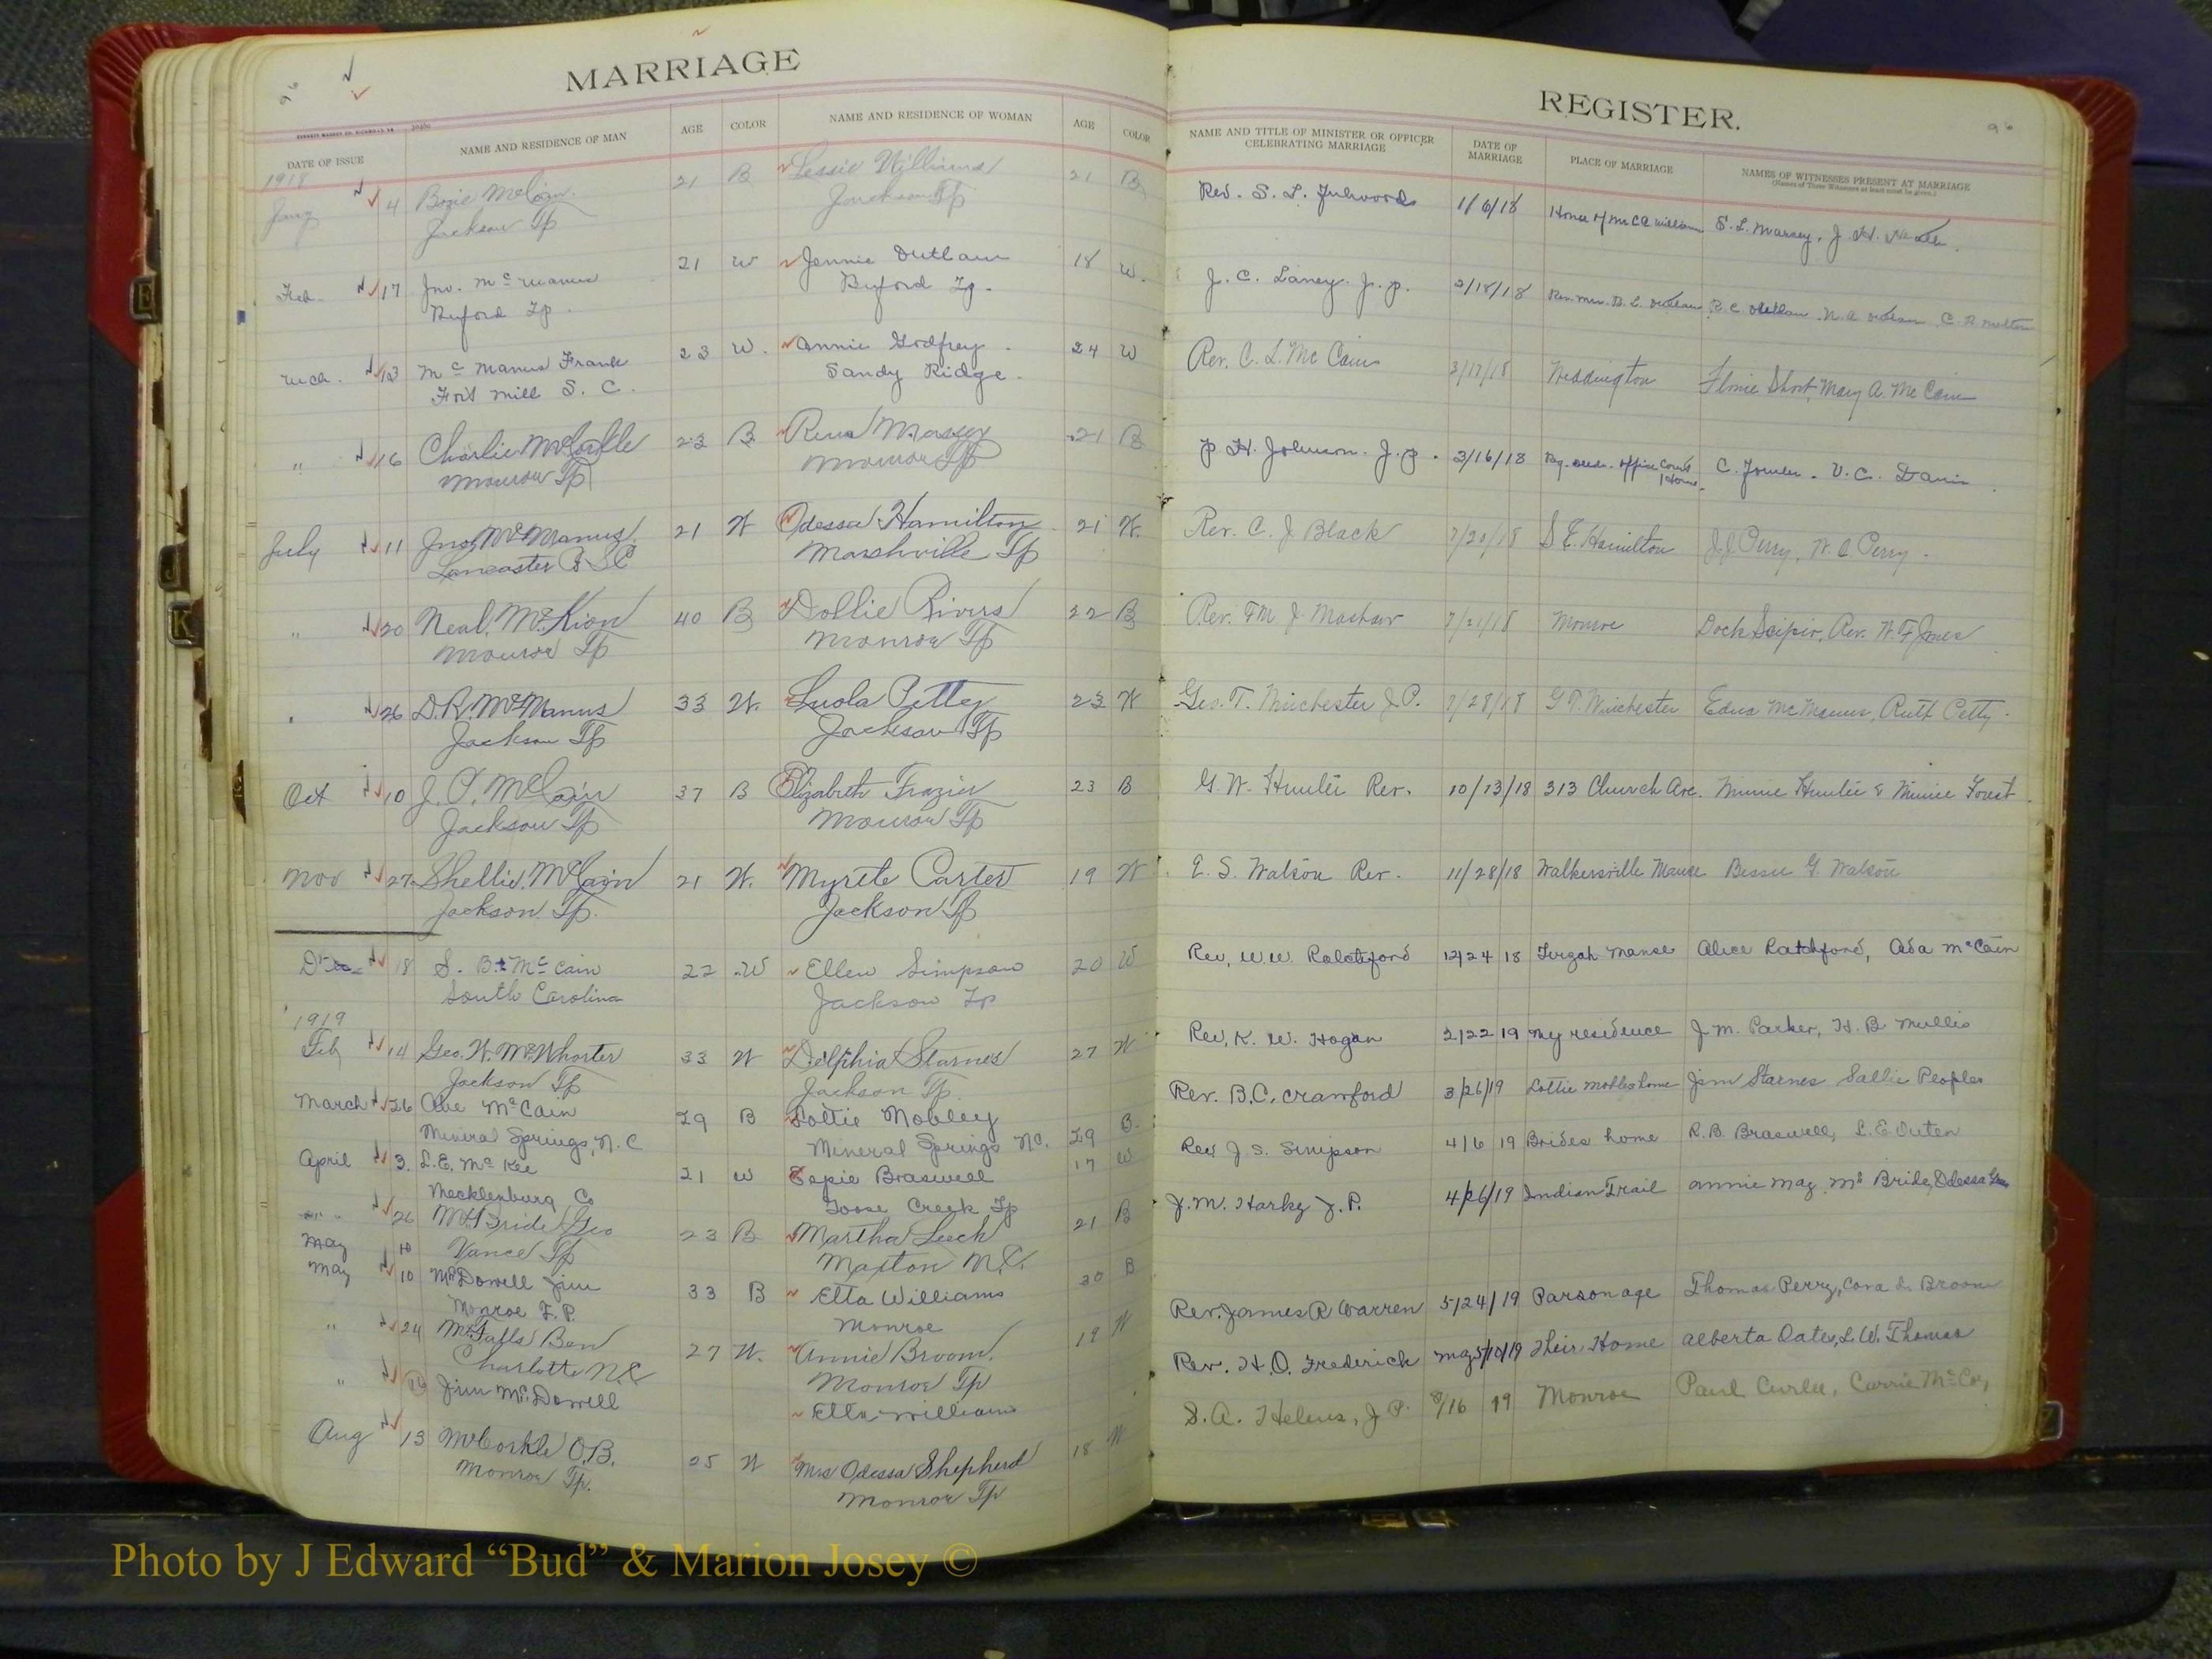 MARRIAGE
DATE OF ISSUE NAME AND RESIDENCE OF MAN AGE COLOR NAME AND RESIDENCE OF WOMAN AGE COLOR
1918
4 Bozie McCain 21 B Lessie Williams 21 B
Jackson Tp Jackson Tp
Feb. 17 Jno. McManus 21 W Jennie Outlaw 18 W.
Buford Tp. Buford Tp.
Mch. 13 McManus Frank 23 W. Annie Godfrey 24 W
Fort Mill S. C. Sandy Ridge.
" 16 Charlie McCorkle 23 B Rena Massey 21 B
Monroe Tp Monroe Tp
July 11 Jno. McManus 21 W Odessa Hamilton 21 W.
Lancaster Co S.C Marshville Tp
" 20 Neal. McKion 40 B Dollie Rivers 22 B
Monroe Tp Monroe Tp
26 D.R. McManus 33 W. Luola Petty 23 W
Jackson Tp Jackson Tp
Oct 10 J. P. McCain 37 B Elizabeth Frazier 23 B
Jackson Tp Monroe Tp
Nov 27 Shellie McCain 21 W. Myrtle Carter 19 W
Jackson Tp. Jackson Tp
18 S. B. McCain 22 W Ellen Simpson 20 W
South Carolina Jackson Tp
1919
Feb 14 Geo. W. McWhorter 33 W Delphia Starnes 27 W
Jackson Tp Jackson Tp.
March 26 Abe McCain 29 B Lottie Mobley 29 B.
Mineral Springs, N.C Mineral Springs N.C.
April 3. L.E. McKee 21 W Espie Braswell 17 W
Mecklenburg Co Goose Creek Tp
26 McBride Geo 23 B Martha Leech 21 B
May 10 Vance Tp Maxton N.C.
May 10 McDowell Jim 33 B Etta Williams 30 B
Monroe T.P. Monroe
" 24 McFalls Ben 27 W. Annie Broom. 19 W
Charlotte N.C. Monroe Tp
" Jim McDowell Etta Williams
Aug 13 McCorkle O.B. 25 W Mrs Odessa Shepherd 18 W
Monroe Tp. Monroe Tp
REGISTER.
96
NAME AND TITLE OF MINISTER OR OFFICER CELEBRATING MARRIAGE DATE OF MARRIAGE PLACE OF MARRIAGE NAMES OF WITNESSES PRESENT AT MARRIAGE
(Names of Three Witnesses at least must be given.)
Rev. S. L. Fulwood 1/6/18 S. L. Massey, J. W.
J. C. Laney. J. P. 2/18/18
Rev. C. L. McCain 3/17/18 Weddington Flonie Short, Mary A. McCain
P. H. Johnson. J. P. 3/16/18 Reg. Deeds. Office Court House. C. Fowler. V. C. Davis
Rev. C. J. Black 7/20/18 S E. Hamilton J.J. Perry, W. A. Perry.
Rev. J. Mashaw 7/21/18 Monroe Dock Scipio, Rev. W. F Jones
Geo. T. Winchester J.P. 7/28/18 G T. Winchester Edna McManus, Ruth Petty.
G. W. Hunter Rev. 10/13/18 313 Church Ave. Minnie Hunter & Minnie Forest
E. S. Watson Rev. 11/28/18 Walkersville Manse Bessie G. Watson
Rev. W.W. Ratchford 12/24 18 Tirzah Manse Alice Ratchford, Ada McCain
Rev, K. W. Hogan 2/22 19 My residence J. M. Parker, H. B. Mullis
Rev. B.C. Crawford 3/26/19 Lottie Mobley home Jim Starnes Sallie Peoples
Rev J. S. Simpson 4/6 19 Brides home R.B. Braswell, L.E. Outen
J. M. Harkey J. P. 4/26/19 Indian Trail Annie May McBride, Odessa
Rev. James R Warren 5/24/19 Parsonage Thomas Perry, Cora L. Broom
Rev. H. O. Frederick May 5/10/19 Their Home Alberta Oates, L. W. Thomas
S. A. Helms, J P. 8/16 19 Monroe Paul Curlee, Carrie McCoy
Photo by J Edward “Bud” & Marion Josey ©